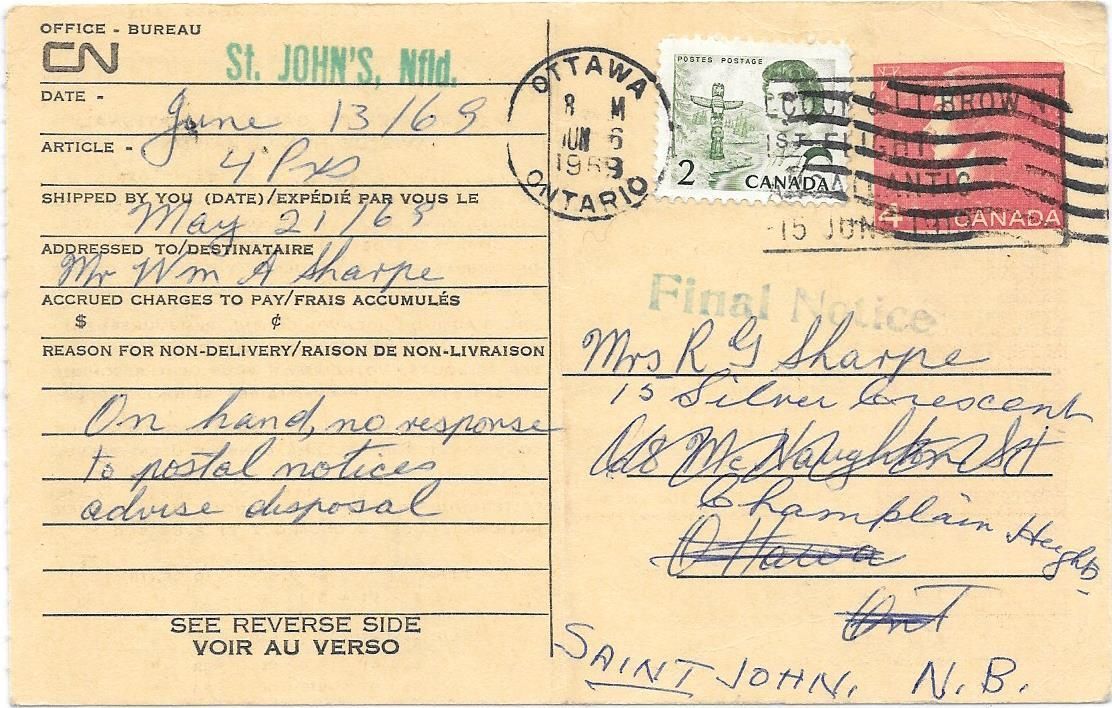 OFFICE - BUREAU
CN
St. JOHN'S, Nfld.
DATE -
June 13/69
ARTICLE -
4 Pxs
SHIPPED BY YOU (DATE)/EXPÉDIÉ PAR VOUS LE
May 21/69
ADDRESSED TO/DESTINATAIRE
Mr Wm A Sharpe
ACCRUED CHARGES TO PAY/FRAIS ACCUMULÉS
$ ¢
REASON FOR NON-DELIVERY/RAISON DE NON-LIVRAISON
On hand, no response
to postal notices
advise disposal
SEE REVERSE SIDE
VOIR AU VERSO
OTTAWA
8 M
JUN 6
1969
ONTARIO
POSTES POSTAGE
2 CANADA
& LT BROWN
1ST FLIGHT
15 JUNE
4 CANADA
Final Notice
Mrs R G Sharpe
15 Silver Crescent
McNaughton St
Champlain Heights
Ottawa
Ont
SAINT JOHN, N.B.